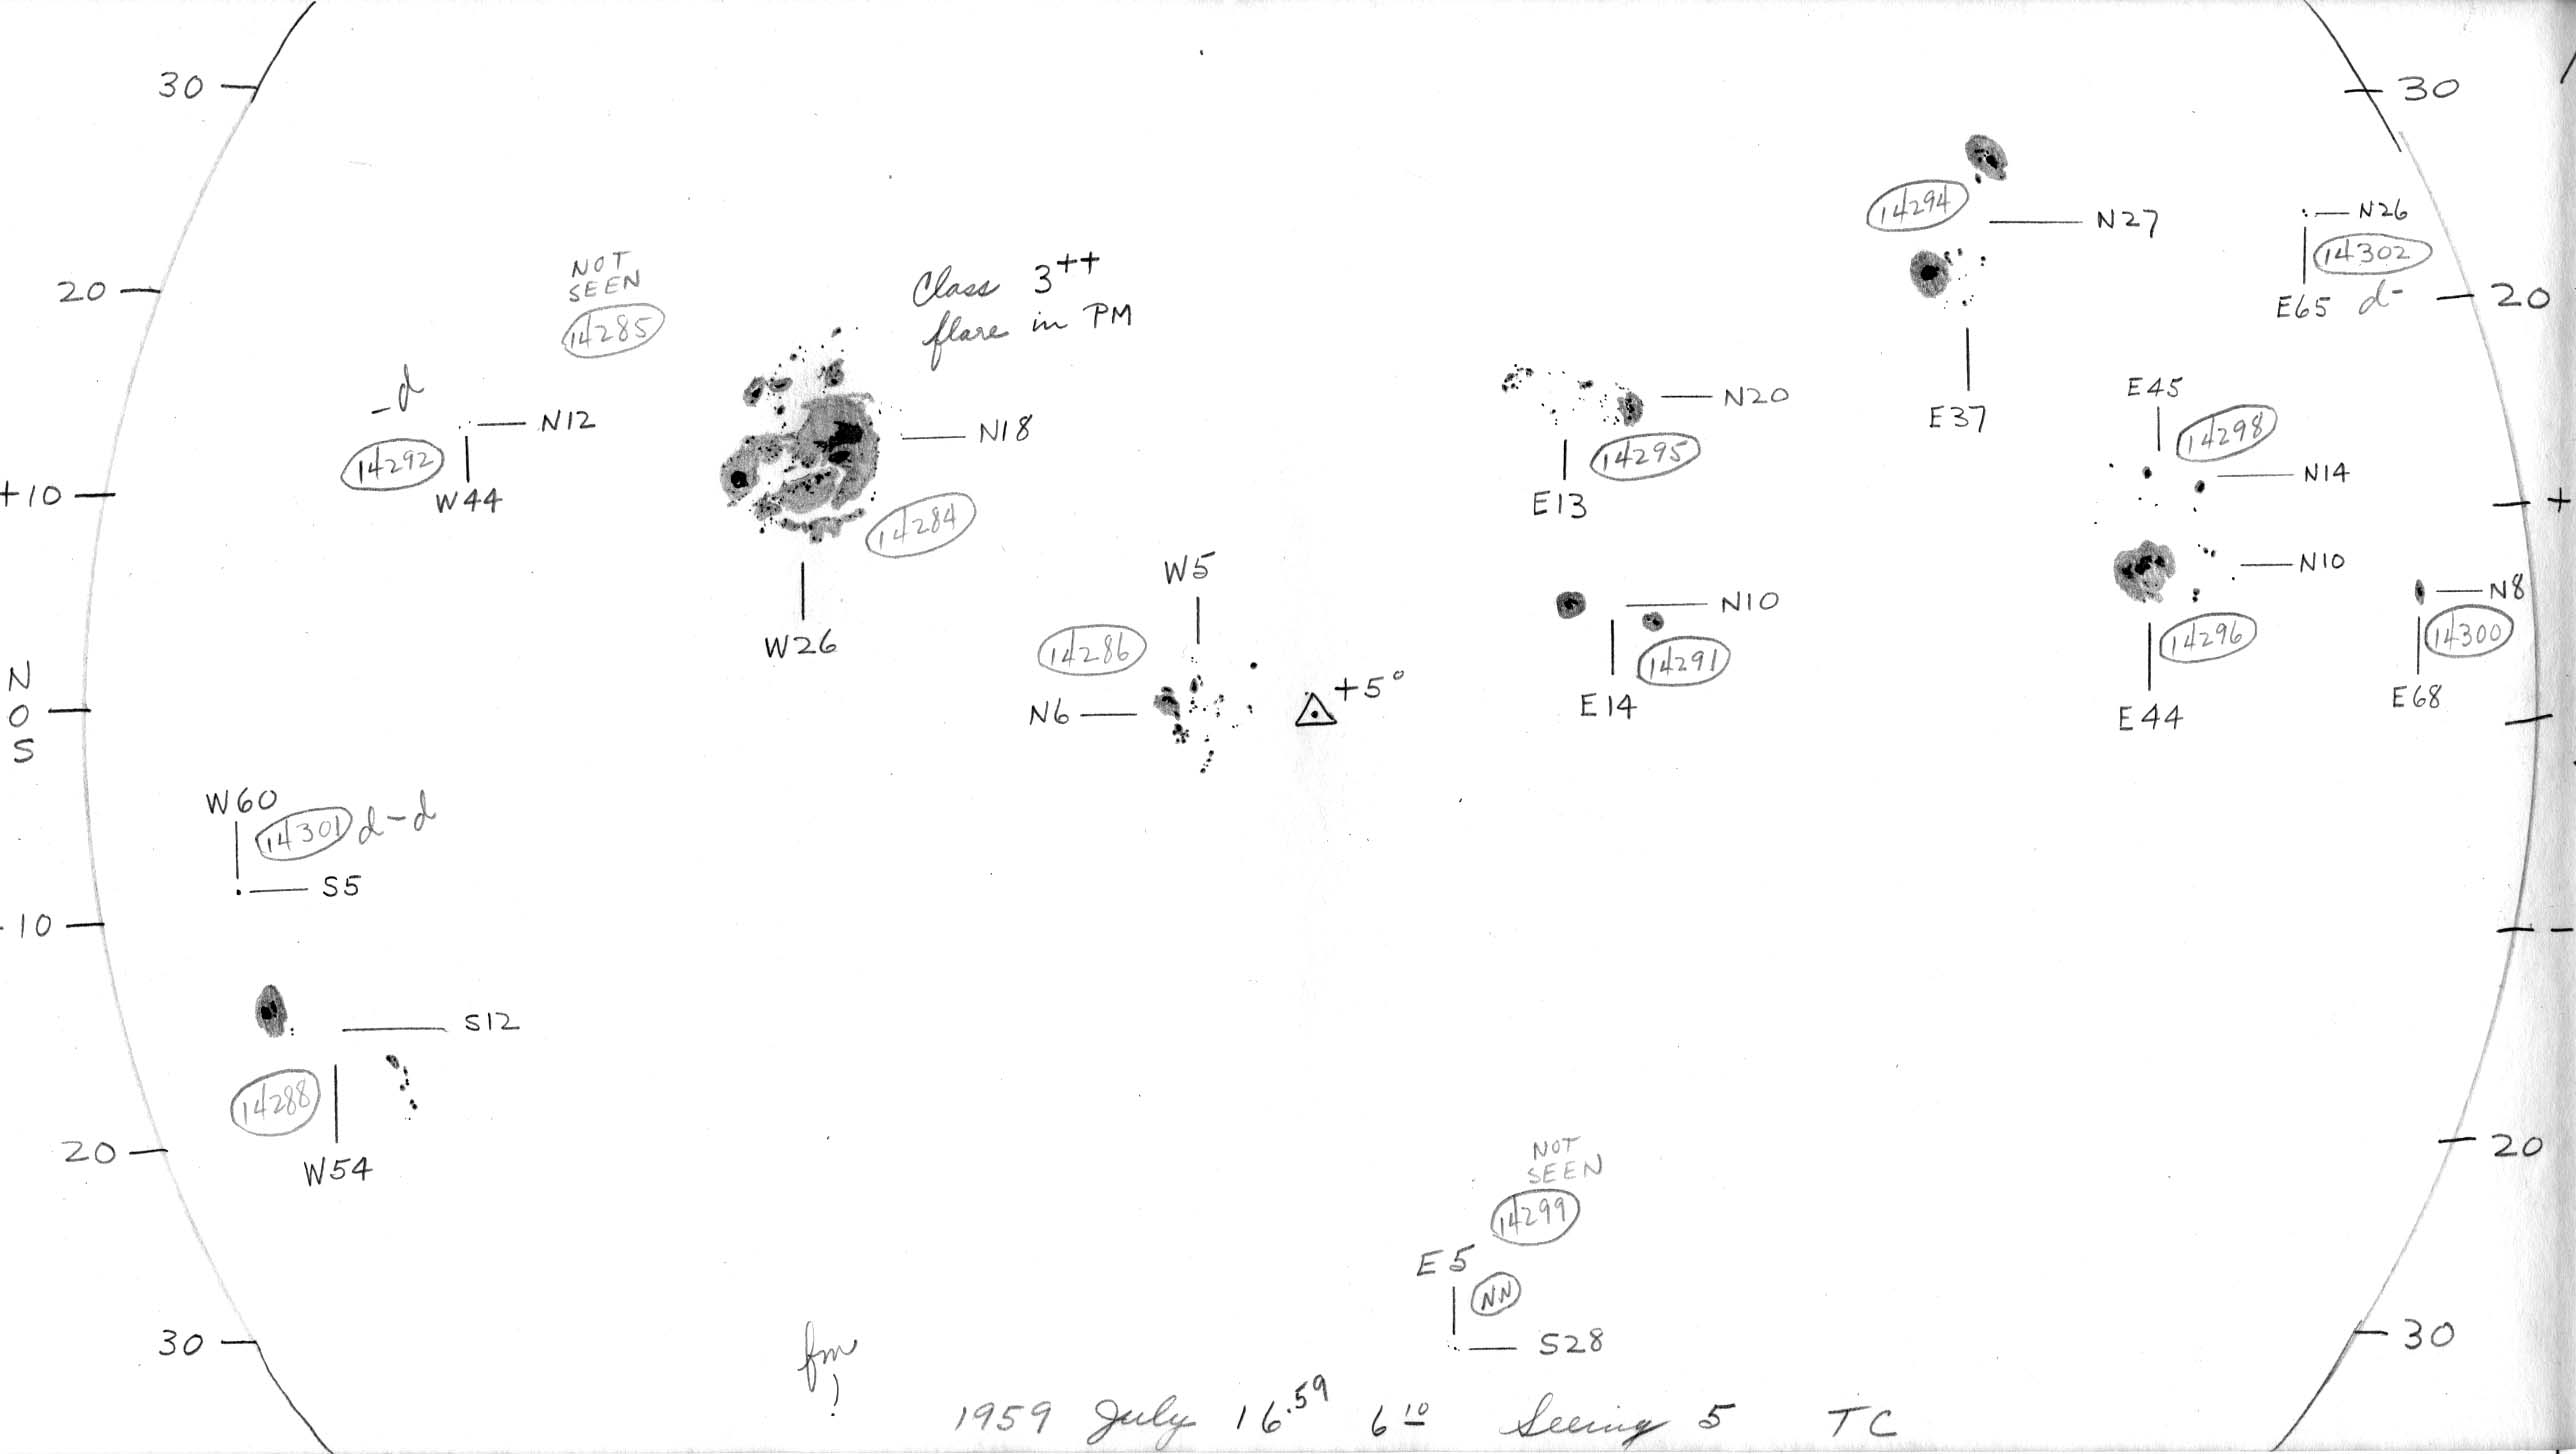 30
30
14294
N27
N26
14302
E65 d-
20
20
NOT
SEEN
14285
Class 3++
flare in PM
-d
N12
14292
W44
N18
14284
W26
N20
14295
E13
E37
E45
14298
N14
+10
+
W5
14286
N6
+5°
N10
14291
E14
N10
14296
E44
N8
14300
E68
N
0
S
W60
14301 d-d
S5
-10
-
S12
14288
W54
20
20
NOT
SEEN
14299
E5
NN
S28
30
30
1959 July 16.59 6 10 Seeing 5 TC